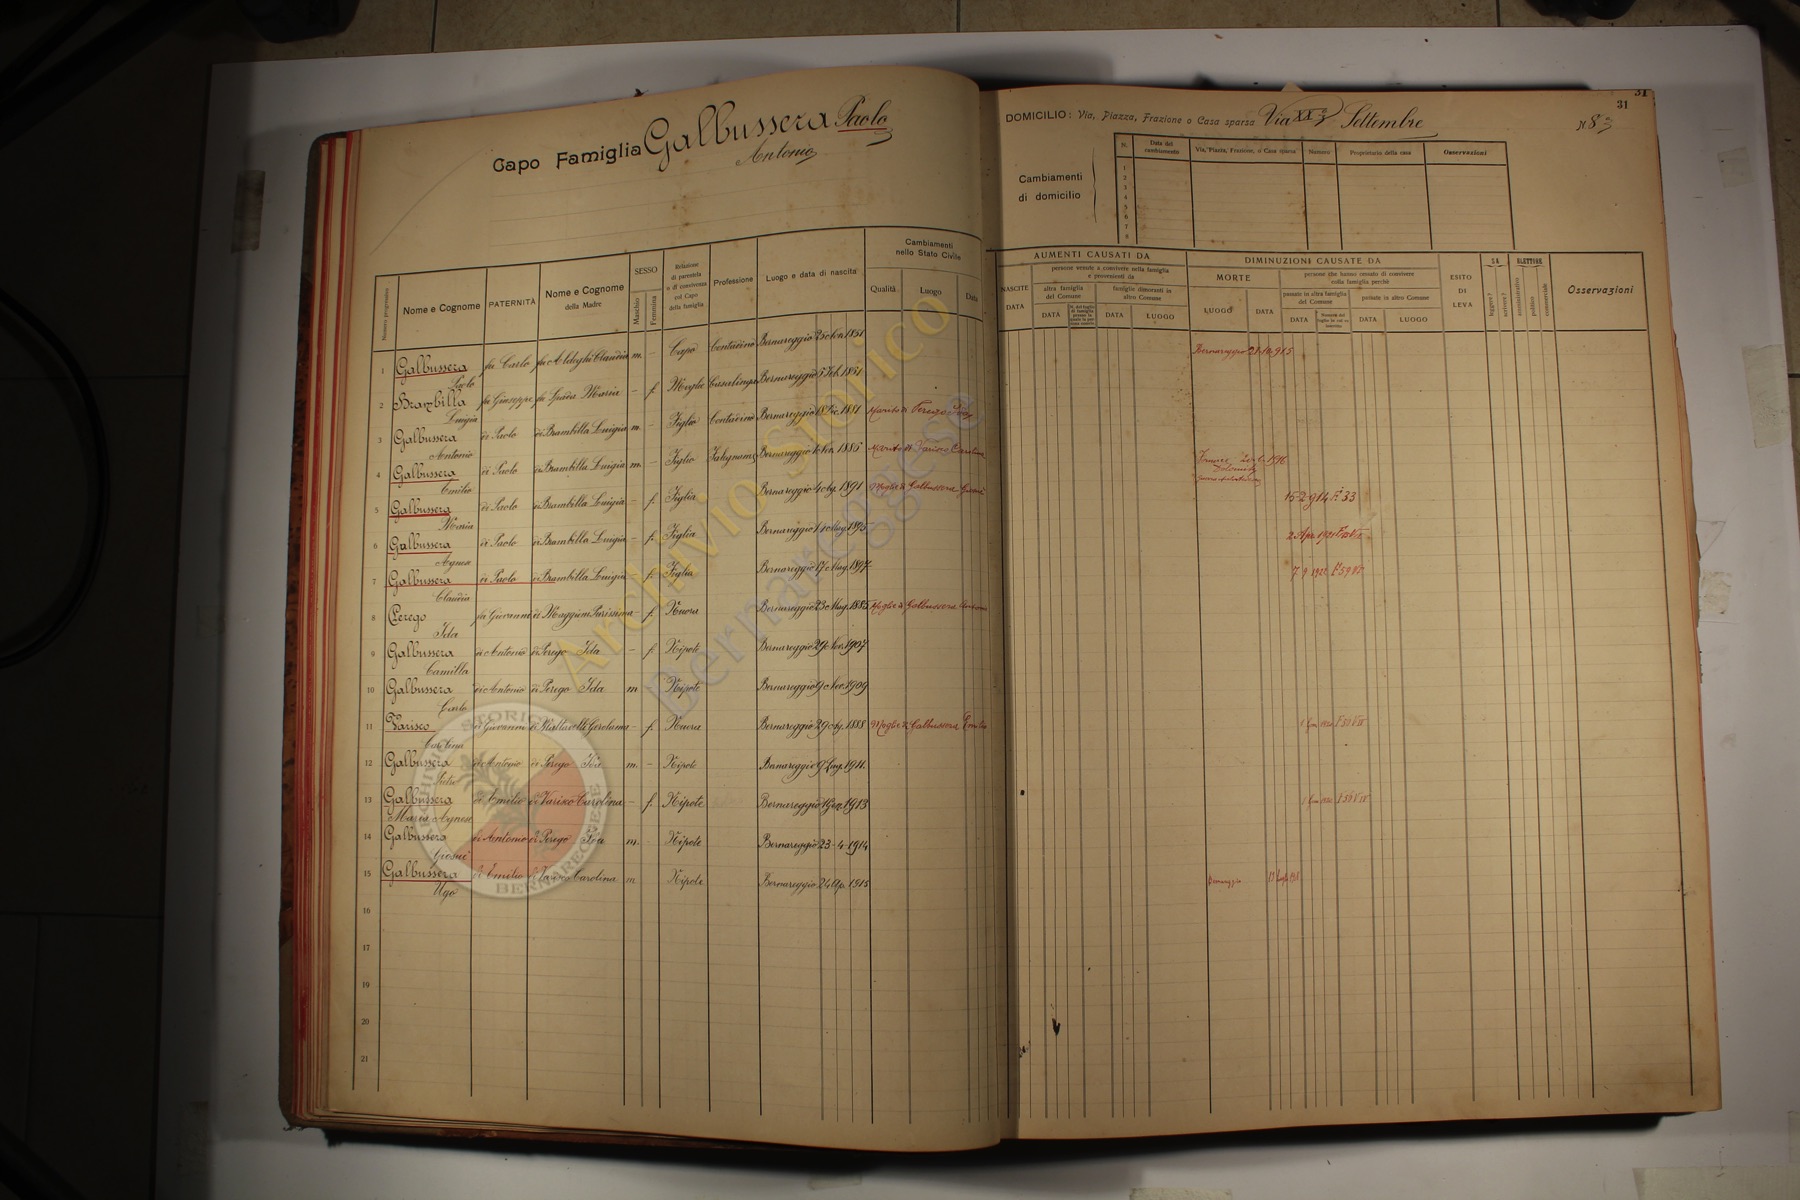 Capo Famiglia Galbussera Paolo
Antonio
31
31
DOMICILIO: Via, Piazza, Frazione o Casa sparsa Via XX Settembre N 83
Cambiamenti
di domicilio
N. Data del cambiamento Via, Piazza, Frazione, o Casa sparsa Numero Proprietario della casa Osservazioni
1
2
3
4
5
6
7
8
Numero progressivo
Nome e Cognome
PATERNITÀ
Nome e Cognome
della Madre
SESSO
Maschio
Femmina
Relazione
di parentela
o di convivenza
col Capo
della famiglia
Professione
Luogo e data di nascita
Cambiamenti
nello Stato Civile
Qualità Luogo Data
AUMENTI CAUSATI DA
NASCITE
DATA
persone venute a convivere nella famiglia
e provenienti da
altra famiglia
del Comune
famiglie dimoranti in
altro Comune
DATA
DATA LUOGO
DIMINUZIONI CAUSATE DA
MORTE
LUOGO DATA
persone che hanno cessato di convivere
colla famiglia perchè
passate in altra famiglia
del Comune
passate in altro Comune
DATA
DATA LUOGO
ESITO
DI
LEVA
SA
leggere?
scrivere?
ELETTORE
amministrativo
politico
commerciale
Osservazioni
1 Galbussera Paolo fu Carlo fu Aldeghi Claudia m. - Capo Contadino Bernareggio 1851 Bernareggio 1915
2 Brambilla Luigia fu Giuseppe fu Maria - f. Moglie Casalinga Bernareggio 5 Feb. 1851
3 Galbussera Antonio di Paolo di Brambilla Luigia m. - Figlio Contadino Bernareggio 18 Dic. 1881 Marito di Perego Ida
4 Galbussera Emilio di Paolo di Brambilla Luigia m. - Figlio Falegname Bernareggio 1885 Marito di Varisco Carolina 1916
5 Galbussera Maria di Paolo di Brambilla Luigia - f. Figlia Bernareggio 1891 Moglie di Galbussera Giosuè 15-2-914 F. 33
6 Galbussera Agnese di Paolo di Brambilla Luigia - f. Figlia Bernareggio 1895 2 Apr. 1921
7 Galbussera Claudia di Paolo di Brambilla Luigia f. Figlia Bernareggio 17 Mag. 1897
8 Perego Ida fu Giovanni di Maggioni Purissima - f. Nuora Bernareggio 23 Mag. 1885 Moglie di Galbussera Antonio
9 Galbussera Camilla di Antonio di Perego Ida - f. Nipote Bernareggio 29 Nov. 1907
10 Galbussera Carlo di Antonio di Perego Ida m Nipote Bernareggio 9 Nov. 1909
11 Varisco Carolina di Giovanni di Mattavelli Gerolama - f. Nuora Bernareggio 1888 Moglie di Galbussera Emilio
12 Galbussera Pietro di Antonio di Perego Ida m. - Nipote Bernareggio 9 Lug. 1911.
13 Galbussera Maria Agnese di Emilio di Varisco Carolina - f. Nipote Bernareggio 1 Gen. 1913
14 Galbussera Giosuè di Antonio di Perego Ida m. Nipote Bernareggio 23-4-1914
15 Galbussera Ugo di Emilio di Varisco Carolina m Nipote Bernareggio 1915 Bernareggio
16
17
19
20
21
Archivio Storico
Bernareggese
ARCHIVIO STORICO
BERNAREGGESE